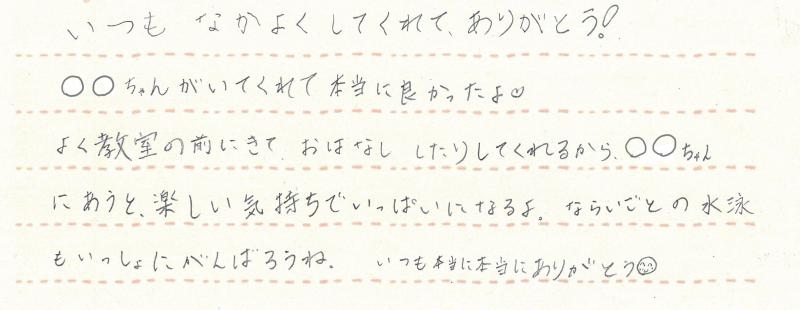 いつも なかよく してくれて、ありがとう!
○○ちゃんがいてくれて本当に良かったよ♡
よく教室の前にきて、おはなし したりしてくれるから、○○ちゃん
にあうと、楽しい気持ちでいっぱいになるよ。ならいごとの水泳
もいっしょにがんばろうね。 いつも本当に本当にありがとう😊